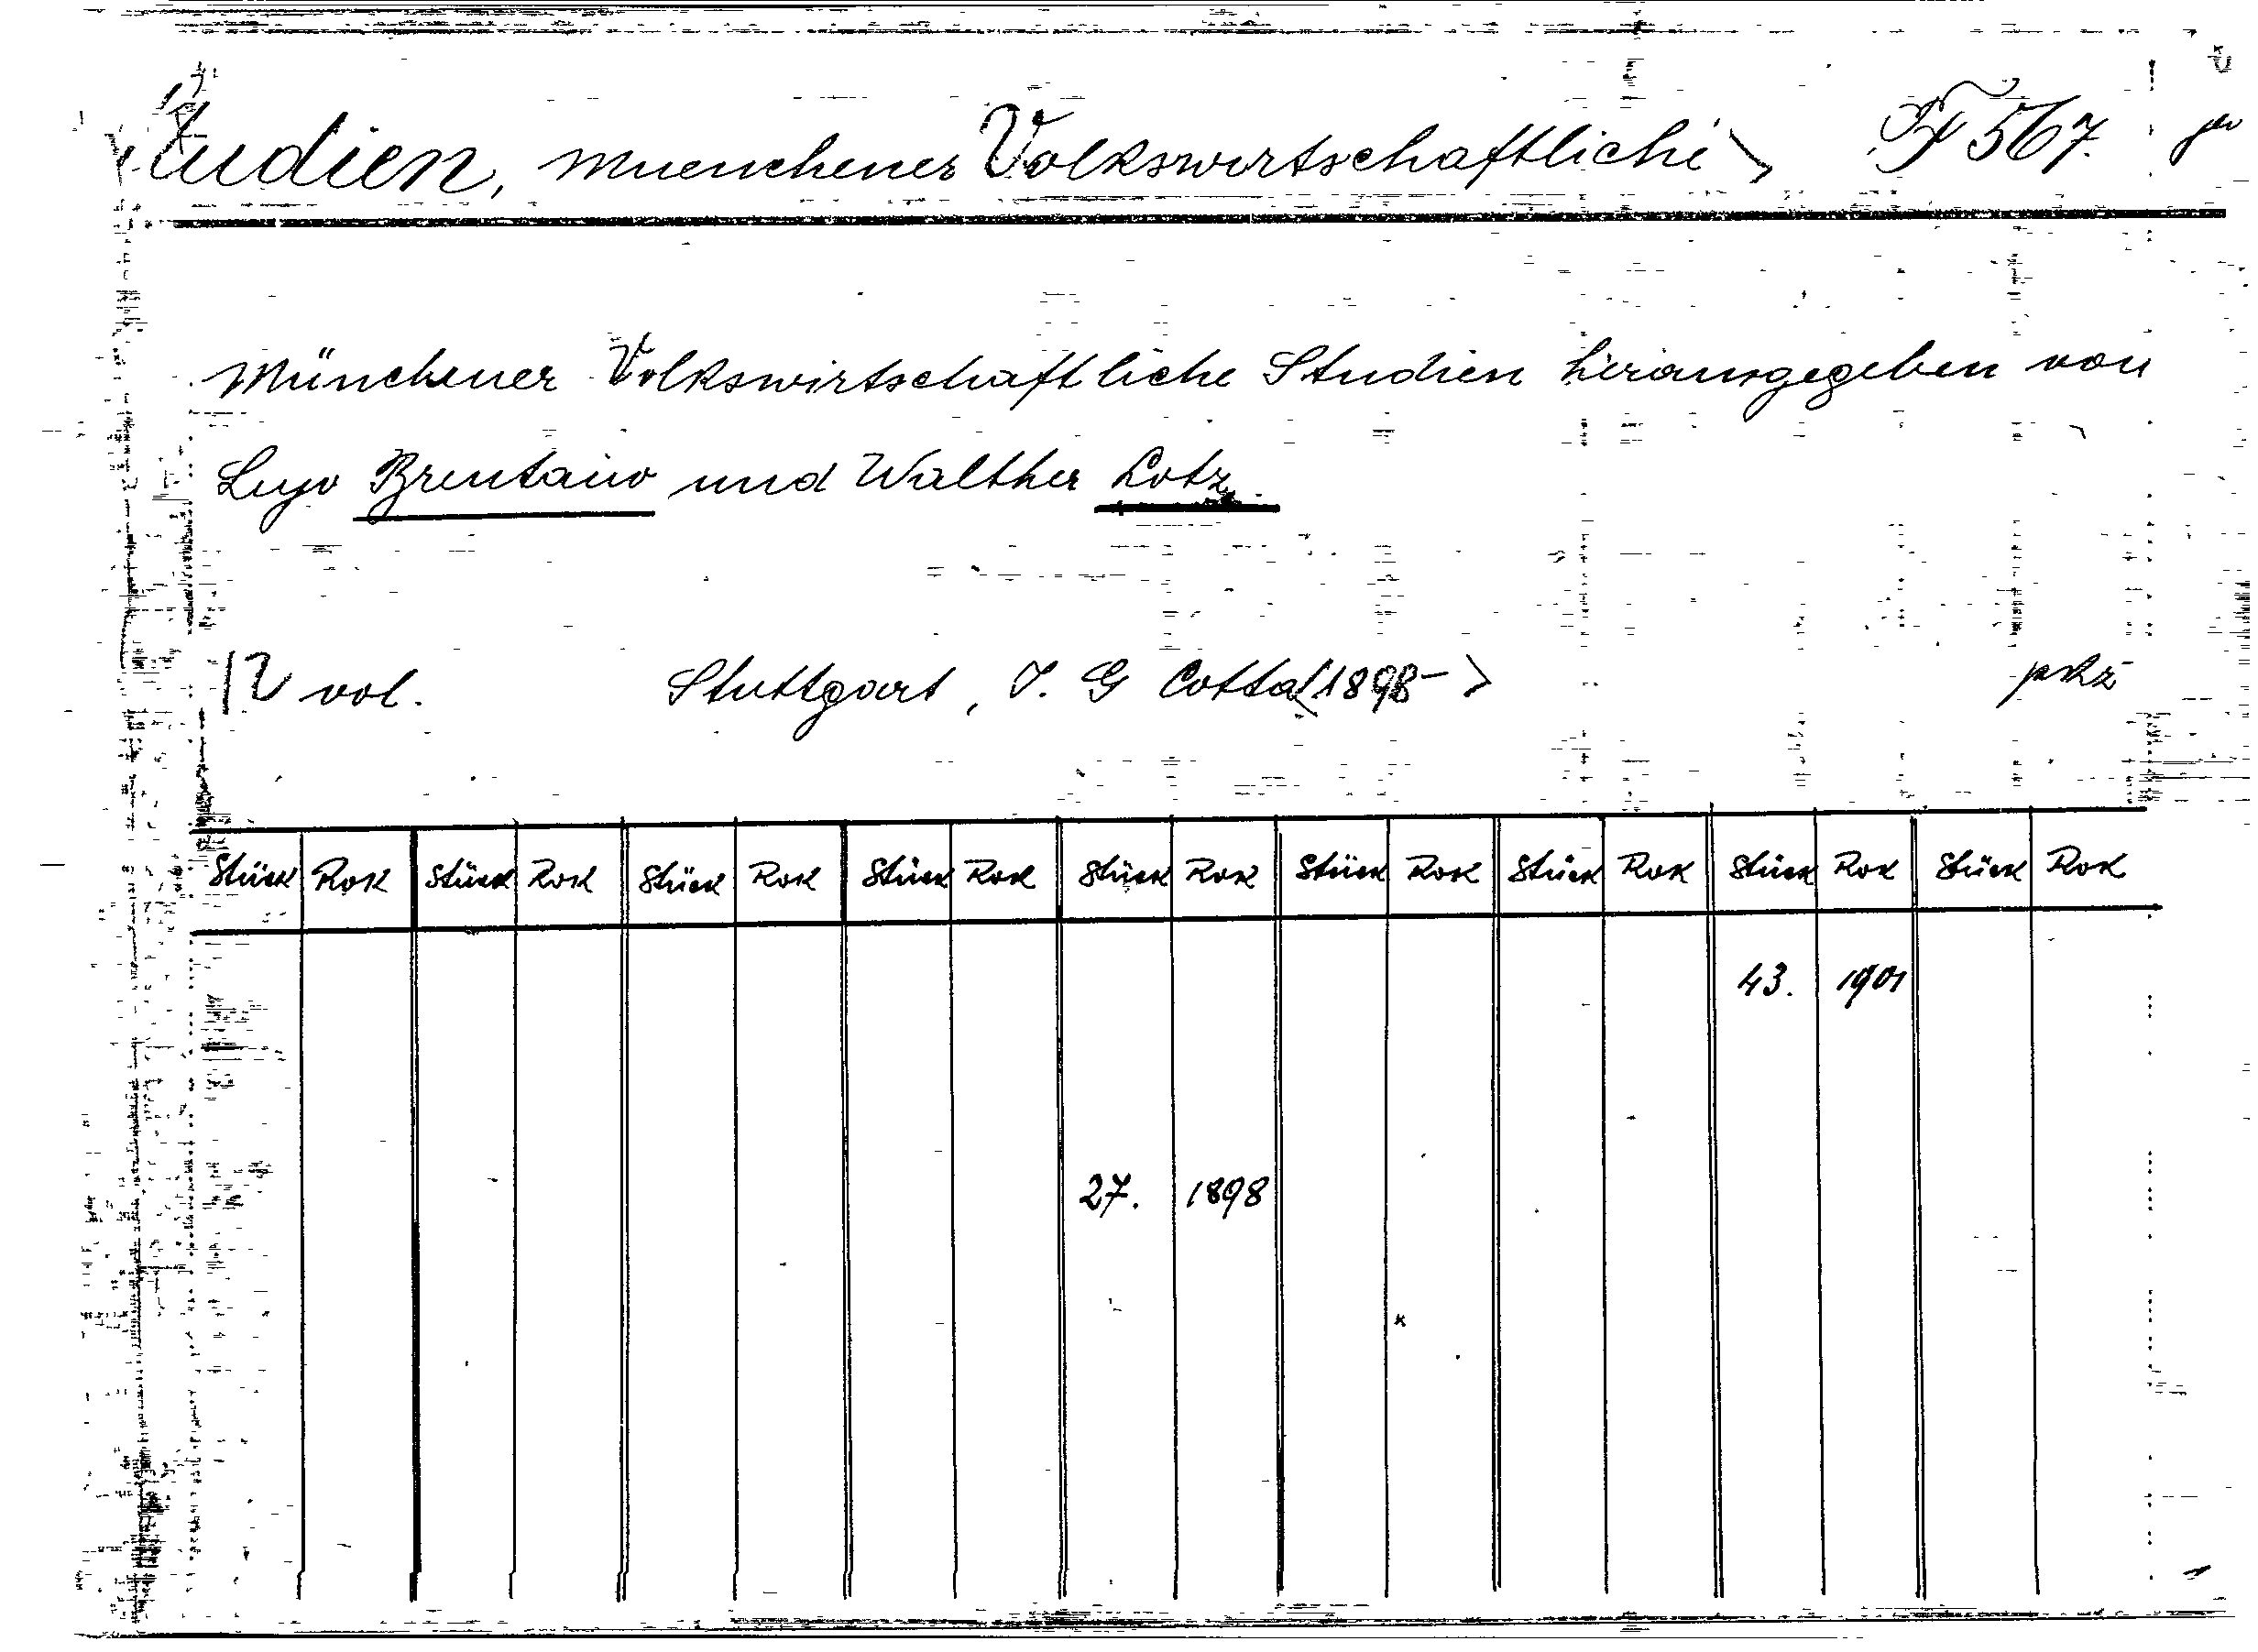 Studien, Muenchener Volkswirtschaftliche F 567.
Münchener Volkswirtschaftliche Studien herausgegeben von
Lujo Brentano und Walther Lotz.
12 vol. Stuttgart, J. G Cotta (1898-)
Stück Rok Stück Rok Stück Rok Stück Rok Stück Rok Stück Rok Stück Rok Stück Rok Stück Rok
43. 1901
27. 1898